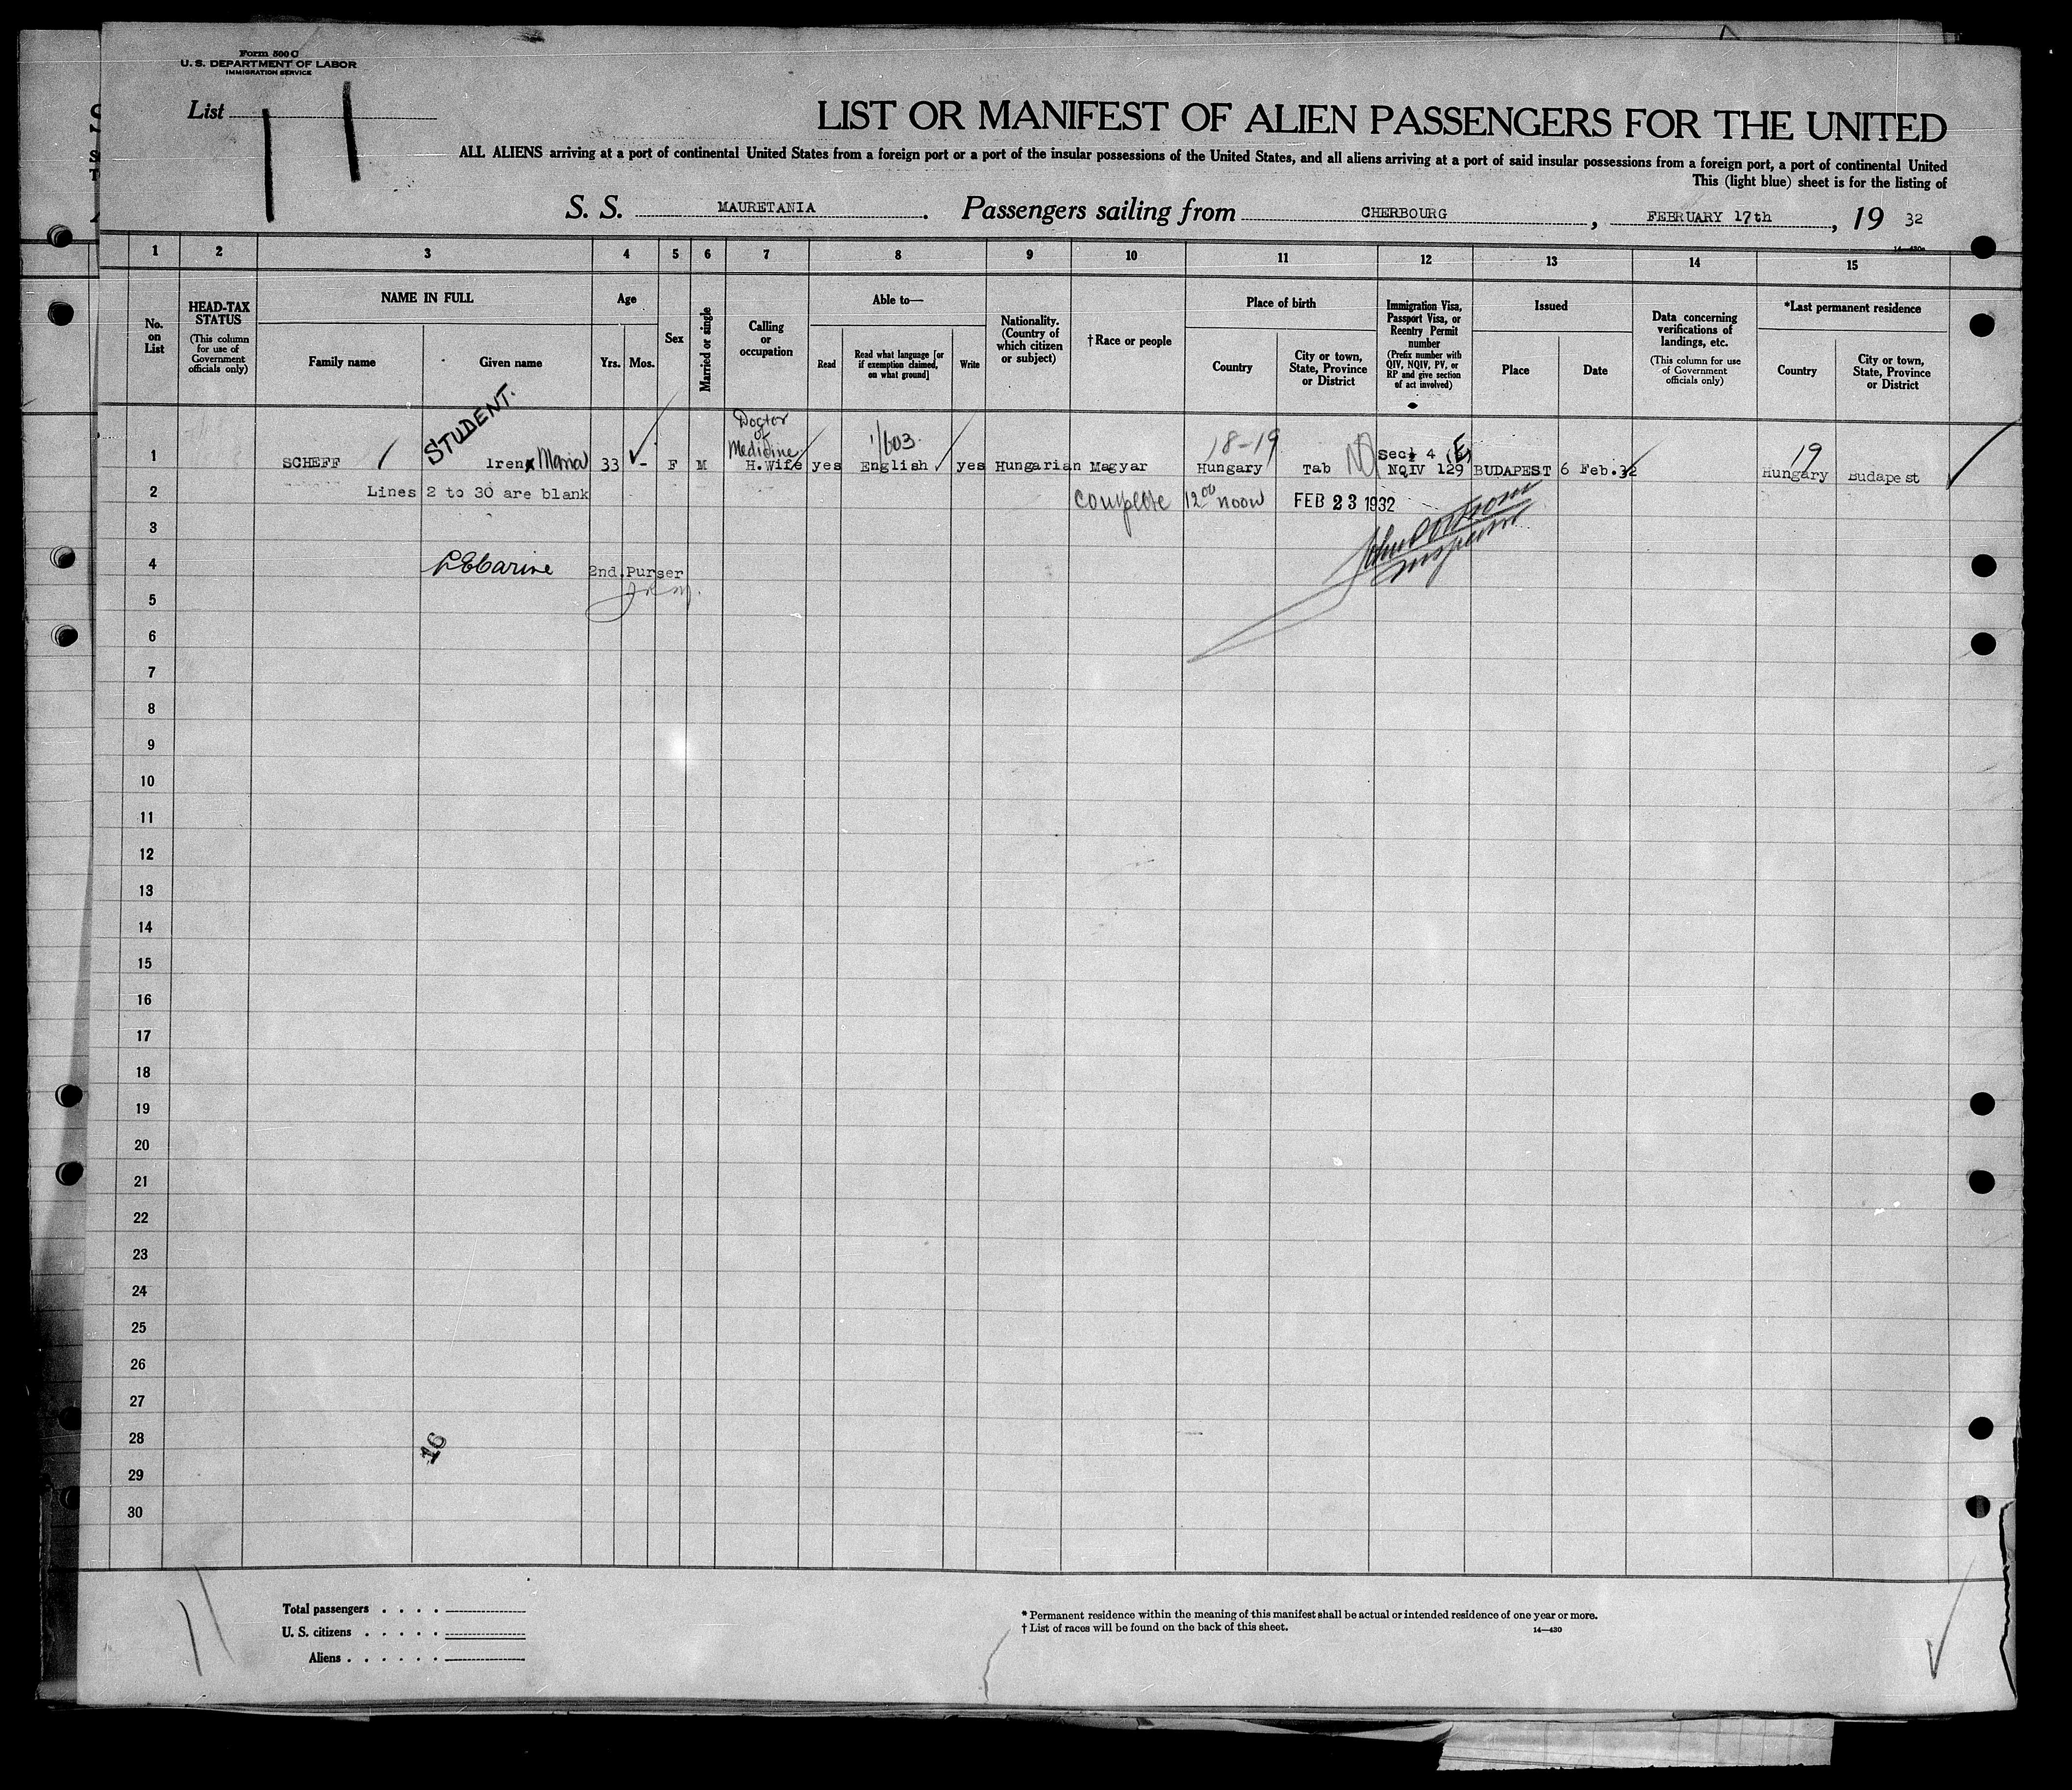 Form 500 C
U. S. DEPARTMENT OF LABOR
IMMIGRATION SERVICE
List 11
LIST OR MANIFEST OF ALIEN PASSENGERS FOR THE UNITED
ALL ALIENS arriving at a port of continental United States from a foreign port or a port of the insular possessions of the United States, and all aliens arriving at a port of said insular possessions from a foreign port, a port of continental United
This (light blue) sheet is for the listing of
S. S. MAURETANIA. Passengers sailing from CHERBOURG, FEBRUARY 17th, 19 32
1 2 3 4 5 6 7 8 9 10 11 12 13 14 15
No. on List
HEAD-TAX STATUS (This column for use of Government officials only)
NAME IN FULL
Family name Given name
Age
Yrs. Mos.
Sex
Married or single
Calling or occupation
Able to—
Read Read what language [or if exemption claimed, on what ground] Write
Nationality. (Country of which citizen or subject)
†Race or people
Place of birth
Country City or town, State, Province or District
Immigration Visa, Passport Visa, or Reentry Permit number (Prefix number with QIV, NQIV, PV, or RP and give section of act involved)
Issued
Place Date
Data concerning verifications of landings, etc. (This column for use of Government officials only)
*Last permanent residence
Country City or town, State, Province or District
STUDENT.
Doctor of Medicine 1/603 18-19 Sec. 4 (E) 19
1 SCHEFF Iren Maria 33 - F M H. Wife yes English yes Hungarian Magyar Hungary Tab NQ NQIV 129 BUDAPEST 6 Feb. 32 Hungary Budapest
2 Lines 2 to 30 are blank Complete 12 00 noon FEB 23 1932
3
4 2nd. Purser
Inspector
5
6
7
8
9
10
11
12
13
14
15
16
17
18
19
20
21
22
23
24
25
26
27
28
16
29
30
Total passengers . . . .
U. S. citizens . . . . .
Aliens . . . . . .
* Permanent residence within the meaning of this manifest shall be actual or intended residence of one year or more.
† List of races will be found on the back of this sheet. 14—430